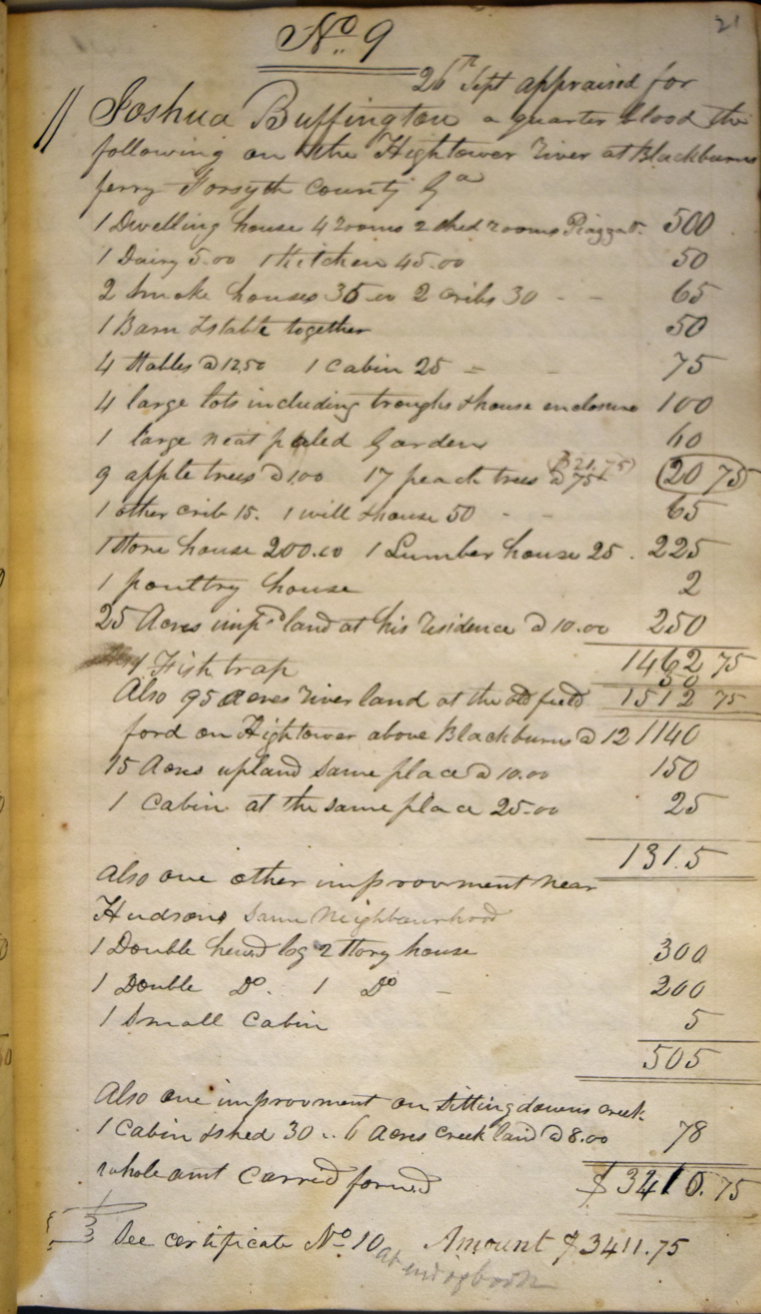 21
No. 9
26th Sept appraised for
Joshua Buffington a quarter blood the
following on the Hightower river at Blackburns
ferry Forsyth County Ga
1 Dwelling house 4 rooms 2 shed rooms Piazza &c. 500
1 Dairy 5.00 1 Kitchen 45.00 50
2 Smoke houses 35.00 2 cribs 30 - - 65
1 Barn & stable together 50
4 Stables @ 12.50 1 Cabin 25 = - 75
4 large lots including troughs & house enclosure 100
1 large neat paled Garden 60
($21.75)
9 apple trees @ 1.00 17 peach trees @ 75 20 75
1 other crib 15. 1 well & house 50 - - 65
1 Store house 200.00 1 Lumber house 25. 225
1 poultry house 2
25 Acres impd land at his residence @ 10.00 250
1462 75
1 Fish trap 50
Also 95 acres river land at the old field 1512 75
ford on Hightower above Blackburns @ 12 1140
15 Acres upland same place @ 10.00 150
1 Cabin at the same place 25.00 25
131.5
Also one other improvment near
Hudsons same neighbourhood
1 Double hewd log 2 Story house 300
1 Double Do. 1 Do - 200
1 Small Cabin 5
505
Also one improvment on Sittingdowns creek
1 Cabin & shed 30 .. 6 Acres Creek land @ 8.00 78
whole amt Carred forwd $3410.75
See certificate No 10 Amount $3411.75
at end of book